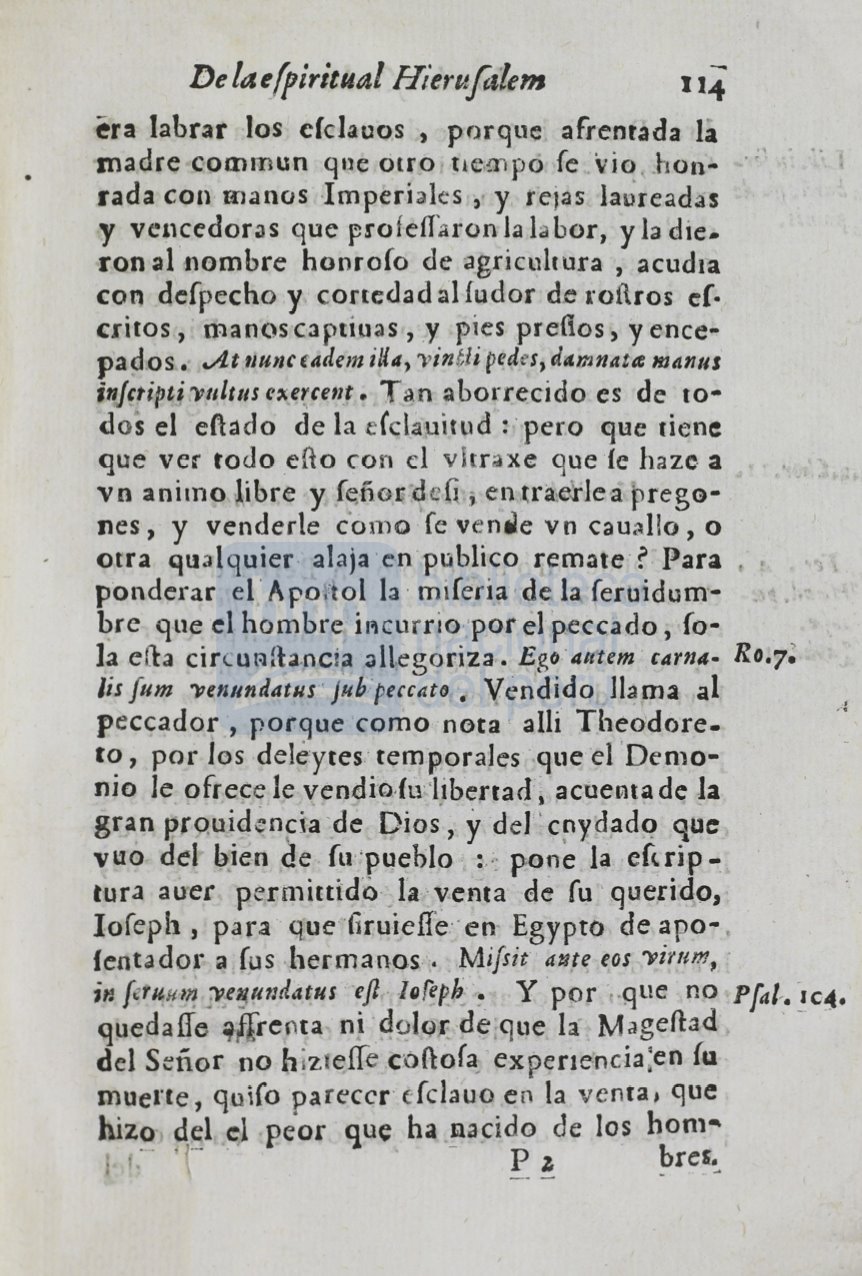 De la eſpiritual Hieruſalem 114
era labrar los eſclauos , porque afrentada la
madre commun que otro tiempo ſe vio hon-
rada con manos Imperiales , y rejas laureadas
y vencedoras que profeſſaron la labor, y la die-
ron al nombre honroſo de agricultura , acudia
con deſpecho y cortedad al ſudor de roſtros eſ-
critos, manos captiuas , y pies preſſos, y ence-
pados. At nunc eadem illa, vincti pedes, damnatæ manus
inſcripti vultus exercent. Tan aborrecido es de to-
dos el eſtado de la eſclauitud : pero que tiene
que ver todo eſto con el vltraxe que ſe haze a
vn animo libre y ſeñor deſi , en traerle a prego-
nes, y venderle como ſe vende vn cauallo, o
otra qualquier alaja en publico remate ? Para
ponderar el Apoſtol la miſeria de la ſeruidum-
bre que el hombre incurrio por el peccado, ſo-
la eſta circunſtancia allegoriza. Ego autem carna- Ro.7.
lis ſum venundatus ſub peccato . Vendido llama al
peccador , porque como nota alli Theodore-
to, por los deleytes temporales que el Demo-
nio le ofrece le vendio ſu libertad, acuenta de la
gran prouidencia de Dios, y del cuydado que
vuo del bien de ſu pueblo : pone la eſcrip-
tura auer permittido la venta de ſu querido,
Ioſeph , para que ſiruieſſe en Egypto de apo-
ſentador a ſus hermanos . Miſsit ante eos virum,
in ſeruum venundatus eſt Ioſeph . Y por que no Pſal. 104.
quedaſſe affrenta ni dolor de que la Mageſtad
del Señor no hizieſſe coſtoſa experiencia en ſu
muerte, quiſo parecer eſclauo en la venta, que
hizo del el peor que ha nacido de los hom-
P 2 bres.